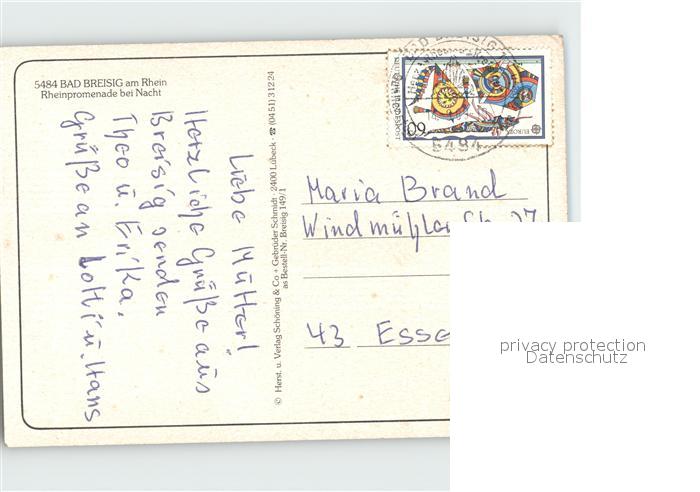 5484 BAD BREISIG am Rhein
Rheinpromenade bei Nacht
Liebe Mutter!
Herzliche Grüße aus
Breisig senden
Theo u. Erika.
Grüße an Lotti u. Hans
© Herst. u. Verlag Schöning & Co + Gebrüder Schmidt · 2400 Lübeck · ☎ (0451) 31224
as Bestell-Nr. Breisig 149/1
BAD BREISIG
5484
60
EUROPA
DEUTSCHE BUNDESPOST
Maria Brand
43 Esse
privacy protection
Datenschutz